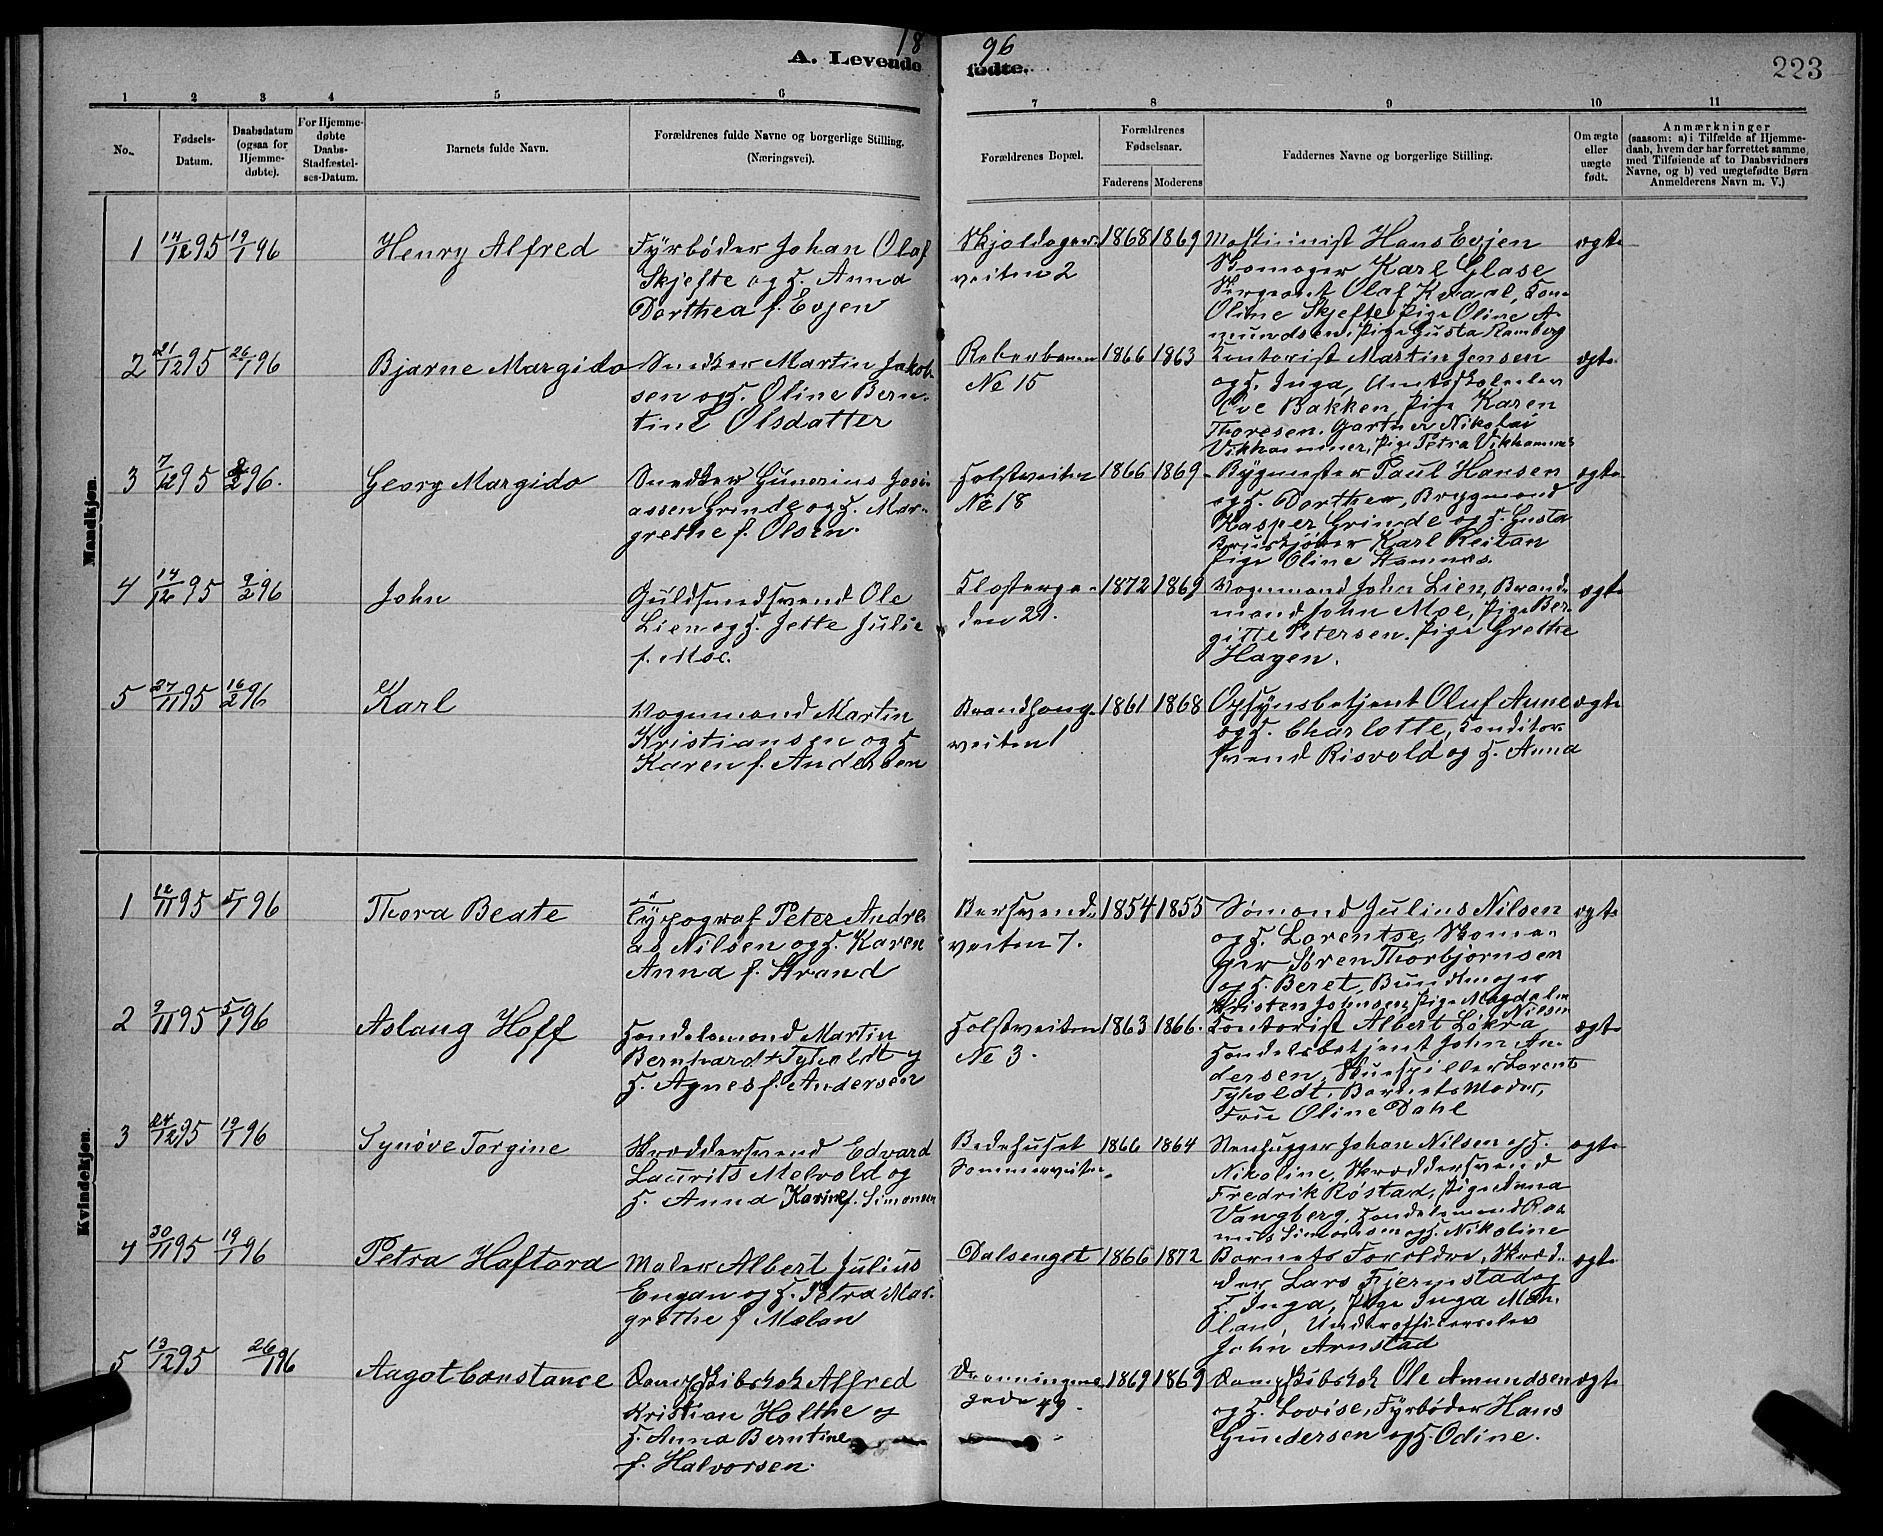 1896
A. Levende fødte.
223
1 2 3 4 5 6 7 8 9 10 11
No.
Fødsels-
Datum.
Daabsdatum
(ogsaa for
Hjemme-
døbte).
For Hjemme-
døbte
Daabs-
Stadfæstel-
ses-Datum.
Barnets fulde Navn.
Forældrenes fulde Navne og borgerlige Stilling.
(Næringsvei).
Forældrenes Bopæl.
Forældrenes
Fødselsaar.
Faderens Moderens
Faddernes Navne og borgerlige Stilling.
Om ægte
eller
uægte
født.
Anmærkninger
(saasom: a) i Tilfælde af Hjemme-
daab, hvem der har forrettet samme,
med Tilføiende af to Daabsvidners
Navne, og b) ved uægtefødte Børn
Anmelderens Navn m. V.)
Mandkjøn.
1 14/12 95 19/1 96
Henry Alfred
Fyrbøder Johan Olaf
Skjefte og H. Anna
Dorthea f. Evjen
Skjoldager-
veiten 2
1868 1869
Maskinist Hans Evjen
Skomager Karl Glase
Sergeant Olaf Kvaal, Kone
Oline Skjefte, Pige Oline A-
mundsen, Pige Gusta Ramberg
ægte
2 21/12 95 26/1 96
Bjarne Margido
Snedker Martin Jakob-
sen og H. Oline Bern-
tine Olsdatter
Reberbanen
No 15
1866 1863
Kontorist Martin Jensen
og H. Inga, Amtsskolelev
Ove Bakken, Pige Karen
Thoresen, Gartner Nikolai
Vikhammer, Pige Petra Vikhammer
ægte
3 7/12 95 2/2 96.
Georg Margido
Snedker Gunerius Josi-
assen Grinde og H. Mar-
grethe f. Olsen.
Holstveiten
No 18
1866 1869
Bygmester Paul Hansen
og H. Dorthea, Brygmand
Kasper Grinde og H. Gusta
Karl Reitan
Pige Oline Hamnes
ægte
4 14/12 95 9/2 96
John
Guldsmedsvend Ole
Lien og H. Jette Julie
f. Moe.
Klosterga-
den 21.
1872 1869
Vognmand John Lien, Brand-
mand John Moe, Pige Ber-
gitte Petersen. Pige Grethe
Hagen.
ægte
5 27/11 95 16/2 96
Karl
Vognmand Martin
Kristiansen og H
Karen f. Andersen
Brandhaug-
veiten 1
1861 1868
Opsynsbetjent Oluf Aune
og H. Charlotte, Konditor-
svend Risvold og H. Anna
ægte
Kvindekjøn.
1 12/11 95 5/1 96
Thora Beate
Typograf Peter Andre-
as Nilsen og H. Karen
Anna f. Strand
Bersvend-
veiten 7.
1854 1855
Sømand Julius Nilsen
og H. Lorentse, Skoma-
ger Søren Thorbjørnsen
og H. Beret, Bundtmager
Kristen Johnsen, Pige Magdalena
Nilsen
ægte
2 9/11 95 5/1 96
Aslaug Hoff
Handelsmand Martin
Bernhardt Tyholdt og
H. Agnes f. Andersen
Holstveiten
No 3.
1863 1866.
Kontorist Albert Løkra
Handelsbetjent John An-
dersen, Skuespiller Lorents
Tyholdt, Barnets Moder,
Fru Oline Dahl
ægte
3 24/12 95 19/1 96
Synøve Torgine
Skræddersvend Edvard
Laurits Melvold og
H. Anna Karine f. Simonsen
Bedehuset
Sommerveiten
1866 1864
Stenhugger Johan Nilsen og H.
Nikoline, Skræddersvend
Fredrik Røstad, Pige Anna
Vangberg, Handelsmand Ras-
mus Simonsen og H. Nikoline
ægte
4 30/11 95 19/1 96
Petra Haftora
Maler Albert Julius
Engan og H. Petra Mar-
grethe f Mælan
Dalsenget
1866 1872
Barnets Forældre, Skræd-
der Lars Fjermstad og
H. Inga, Pige Inga Mæ-
lan, Underofficerselev
John Arnstad
ægte
5 13/12 95 26/1 96
Aagot Constance
Dampskibskok Alfred
Kristian Holthe og
H. Anna Berntine
f. Halvorsen.
Dronningens
gade 49.
1869 1869
Dampskibskok Ole Amundsen
og H. Lovise, Fyrbøder Hans
Gundersen og H. Odine.
ægte